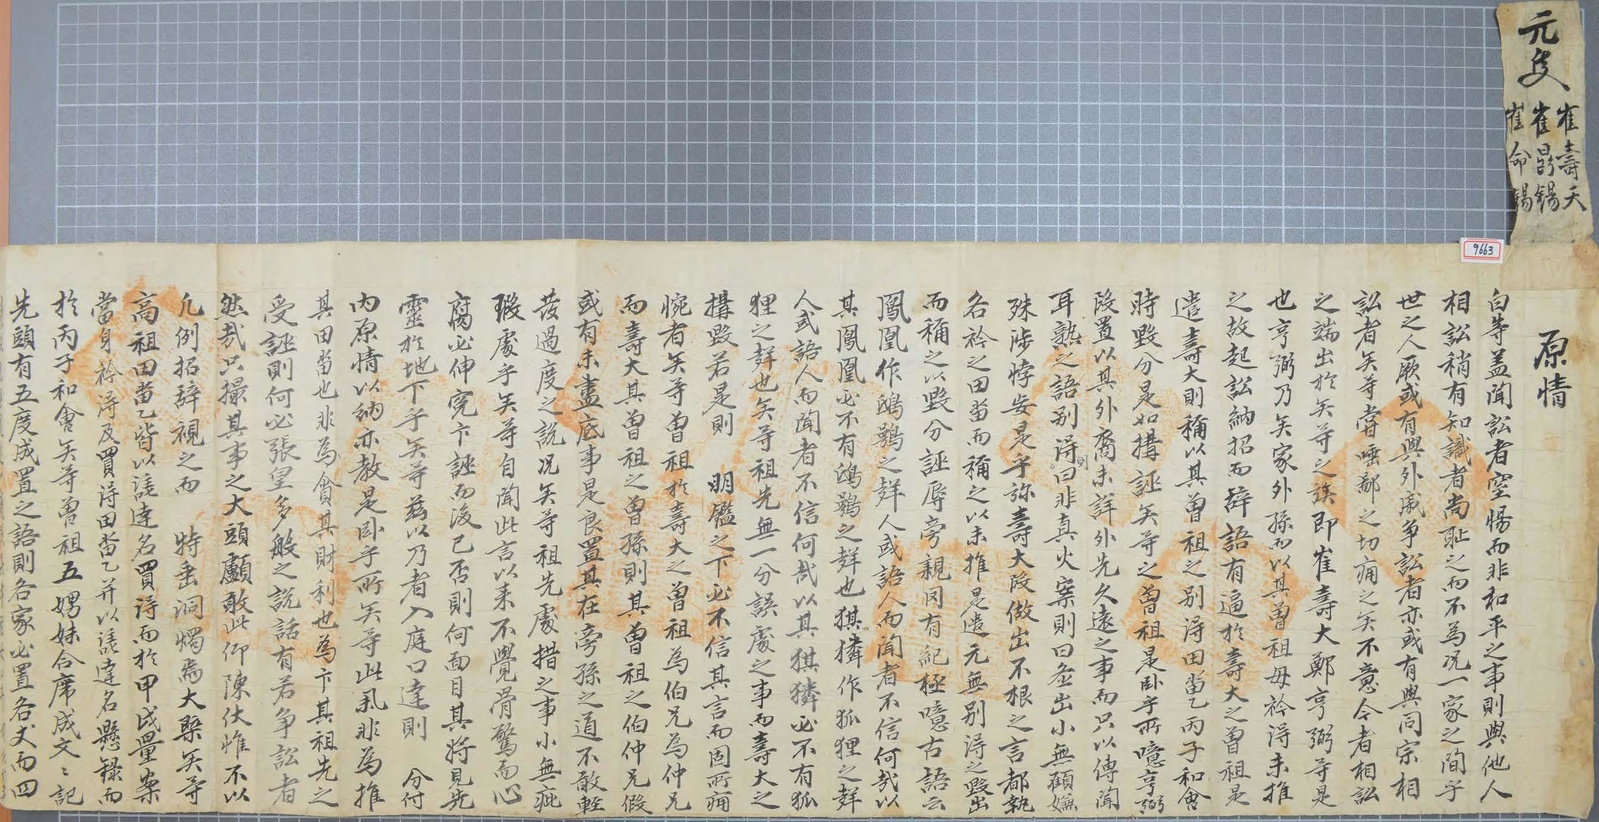 元隻
崔壽天
崔錫
崔命錫
9663
原情
白等盖聞訟者窒惕而非和平之事則與他人
相訟稍有知識者尙耻之而不爲况一家之間乎
世之人厥或有與外戚爭訟者亦或有與同宗相
訟者矣等當唾鄙之切痛之矣不意今者相訟
之端出於矣等之族卽崔壽大鄭亨弼等是
也亨弼乃矣家外孫而以其曾祖母衿淂未推
之故起訟納招而辞語有逼於壽大之曾祖是
遣壽大則稱以其曾祖之別淂田畓乙丙子和會
時毁分是如構誣矣等之曾祖是卧乎所噫亨弼
段置以其外裔未詳外先久遠之事而只以傳聞
耳熟之語別淂曰非真火案則曰岙出小無顧嫌
殊涉悖妄是乎旀壽大段做出不根之言都執
各衿之田畓而稱之以未推是遣元無別淂之毁出
而稱之以毁分誣辱旁親罔有紀極噫古語云
鳳凰作鴟鵶之群人或語人而聞者不信何㢤以
其鳳凰必不有鴟鵶之群也猉獜作狐狸之群
人或語人而聞者不信何㢤以其猉獜必不有狐
狸之群也矣等祖先無一分誤處之事而壽大之
構毁若是則 明鑑之下必不信其言而固所痛
惋者矣等曾祖於壽大之曾祖爲伯兄爲仲兄
而壽大其曾祖之曾孫則其曾祖之伯仲兄假
或有未盡底事是良置其在旁孫之道不敢輕
發過度之說况矣等祖先處措之事小無疵
瑕處乎矣等自聞此言以来不覺骨驚而心
腐必伸寃卞誣而後已否則何面目其將見先
靈於地下乎矣等玆以乃者入庭口達則 分付
內原情以納亦敎是卧乎所矣等此乱非爲推
其田畓也非爲貪其財利也爲卞其祖先之
受誣則何必張皇多般之說話有若爭訟者
然㢤只撮其事之大頭顱敢此仰陳伏惟不以
凡例招辞視之而 特垂洞燭焉大槩矣等
高祖田畓乙皆以達名買淂而於甲戌量案
當身衿淂及買淂田畓乙并以達名懸錄而
於丙子和會矣等曾祖五娚妹合席成文々記
先頭有五度成置之語則各家必置各丈而四